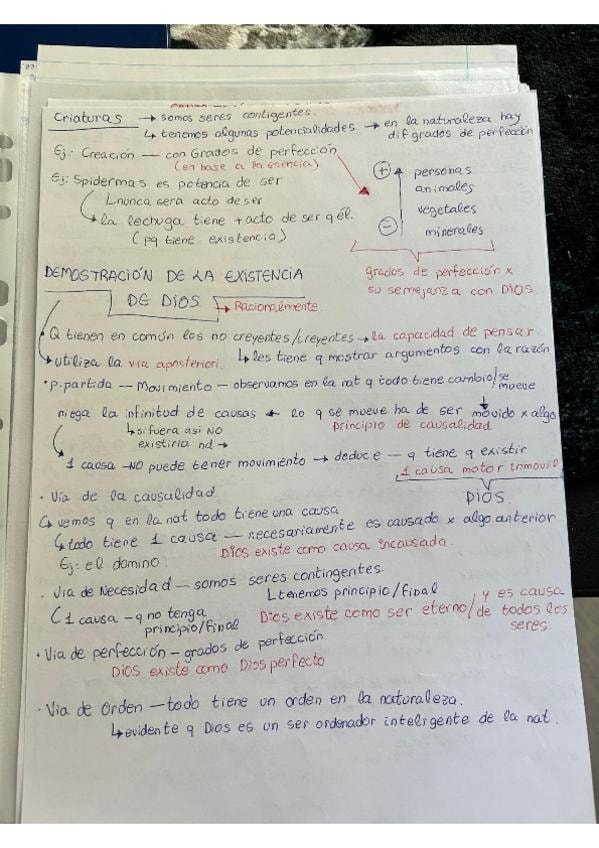 Criaturas → somos seres contigentes.
↳ tenemos algunas potencialidades → en la naturaleza hay
dif grados de perfección
Ej: Creación — con Grados de perfección
(en base a la esencia)
Ej: Spidermas es potencia de ser
↳ nunca sera acto de ser
↳ la lechuga tiene + acto de ser q él.
(pq tiene existencia)
+ personas
animales
vegetales
- minerales
grados de perfección x
su semejanza con DIOS
DEMOSTRACIÓN DE LA EXISTENCIA
DE DIOS → Racionalmente
· Q tienen en común los no creyentes/creyentes → la capacidad de pensar
↳ utiliza la via aposteriori. ↳ les tiene q mostrar argumentos con la razón
· p.partida — Movimiento — observamos en la nat q todo tiene cambio/se
mueve
niega la infinitud de causas ← lo q se mueve ha de ser movido x algo
↳ si fuera asi NO principio de causalidad
existiria nd →
1 causa — NO puede tener movimiento → deduce — q tiene q existir
1 causa motor inmovil
DIOS
· Vía de la causalidad
↳ vemos q en la nat todo tiene una causa
↳ todo tiene 1 causa — necesariamente es causado x algo anterior
Dios existe como causa incausada.
Ej: el domino
. Via de Necesidad — somos seres contingentes
↳ tenemos principio/final
1 causa — q no tenga
principio/final
Dios existe como ser eterno/ y es causa
de todos los
seres.
· Via de perfección – grados de perfección
Dios existe como Dios perfecto
· Via de Orden — todo tiene un orden en la naturaleza.
↳ evidente q Dios es un ser ordenador inteligente de la nat.